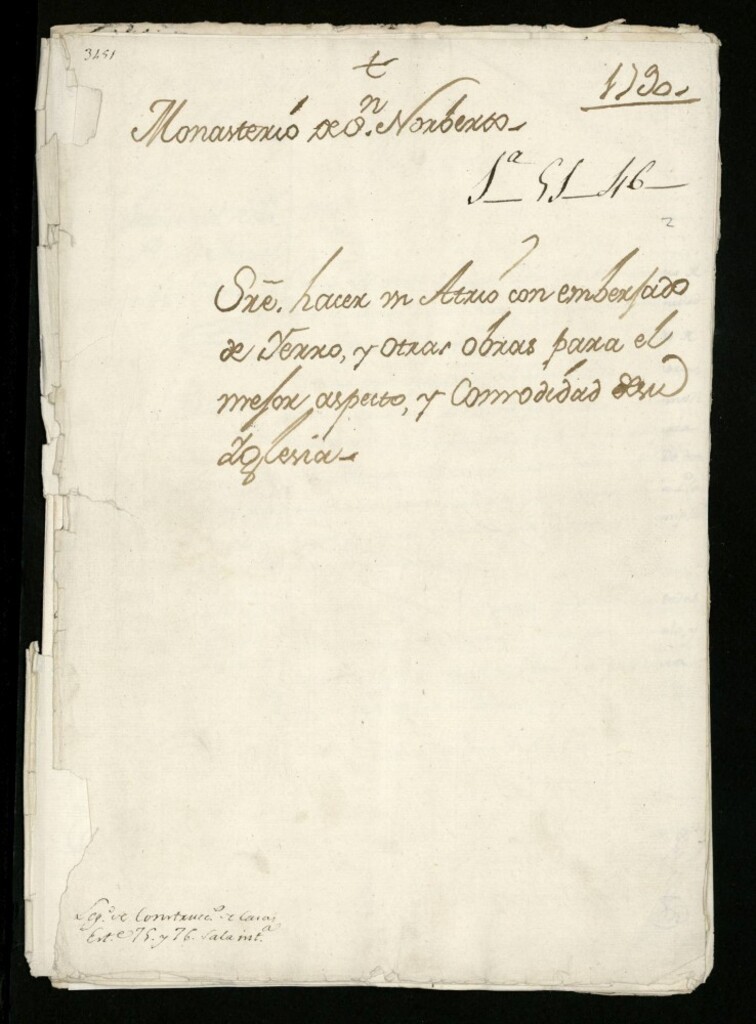 3451
1790.
Monasterio de Sn. Norberto
1a 51 46
2
Sre. hacer un Atrio con emberjado
de Yerro, y otras obras para el
mejor aspecto, y Comodidad de su
Yglesia
Leg.o de Construcc.n de Casas
Est.e 75. y 76. Sala int.a